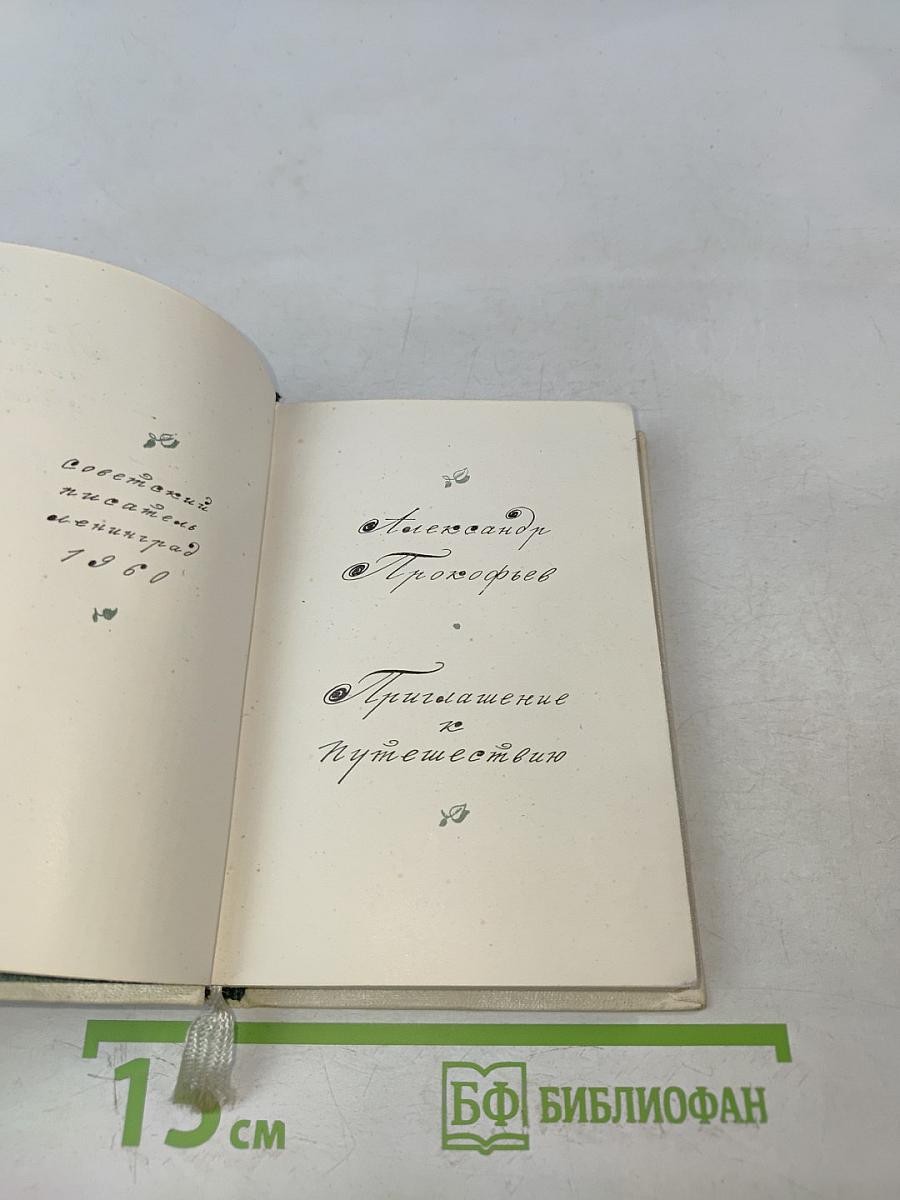 советский
писатель
ленинград
1960
Александр
Прокофьев
Приглашение
к
путешествию
15 см
БФ БИБЛИОФАН